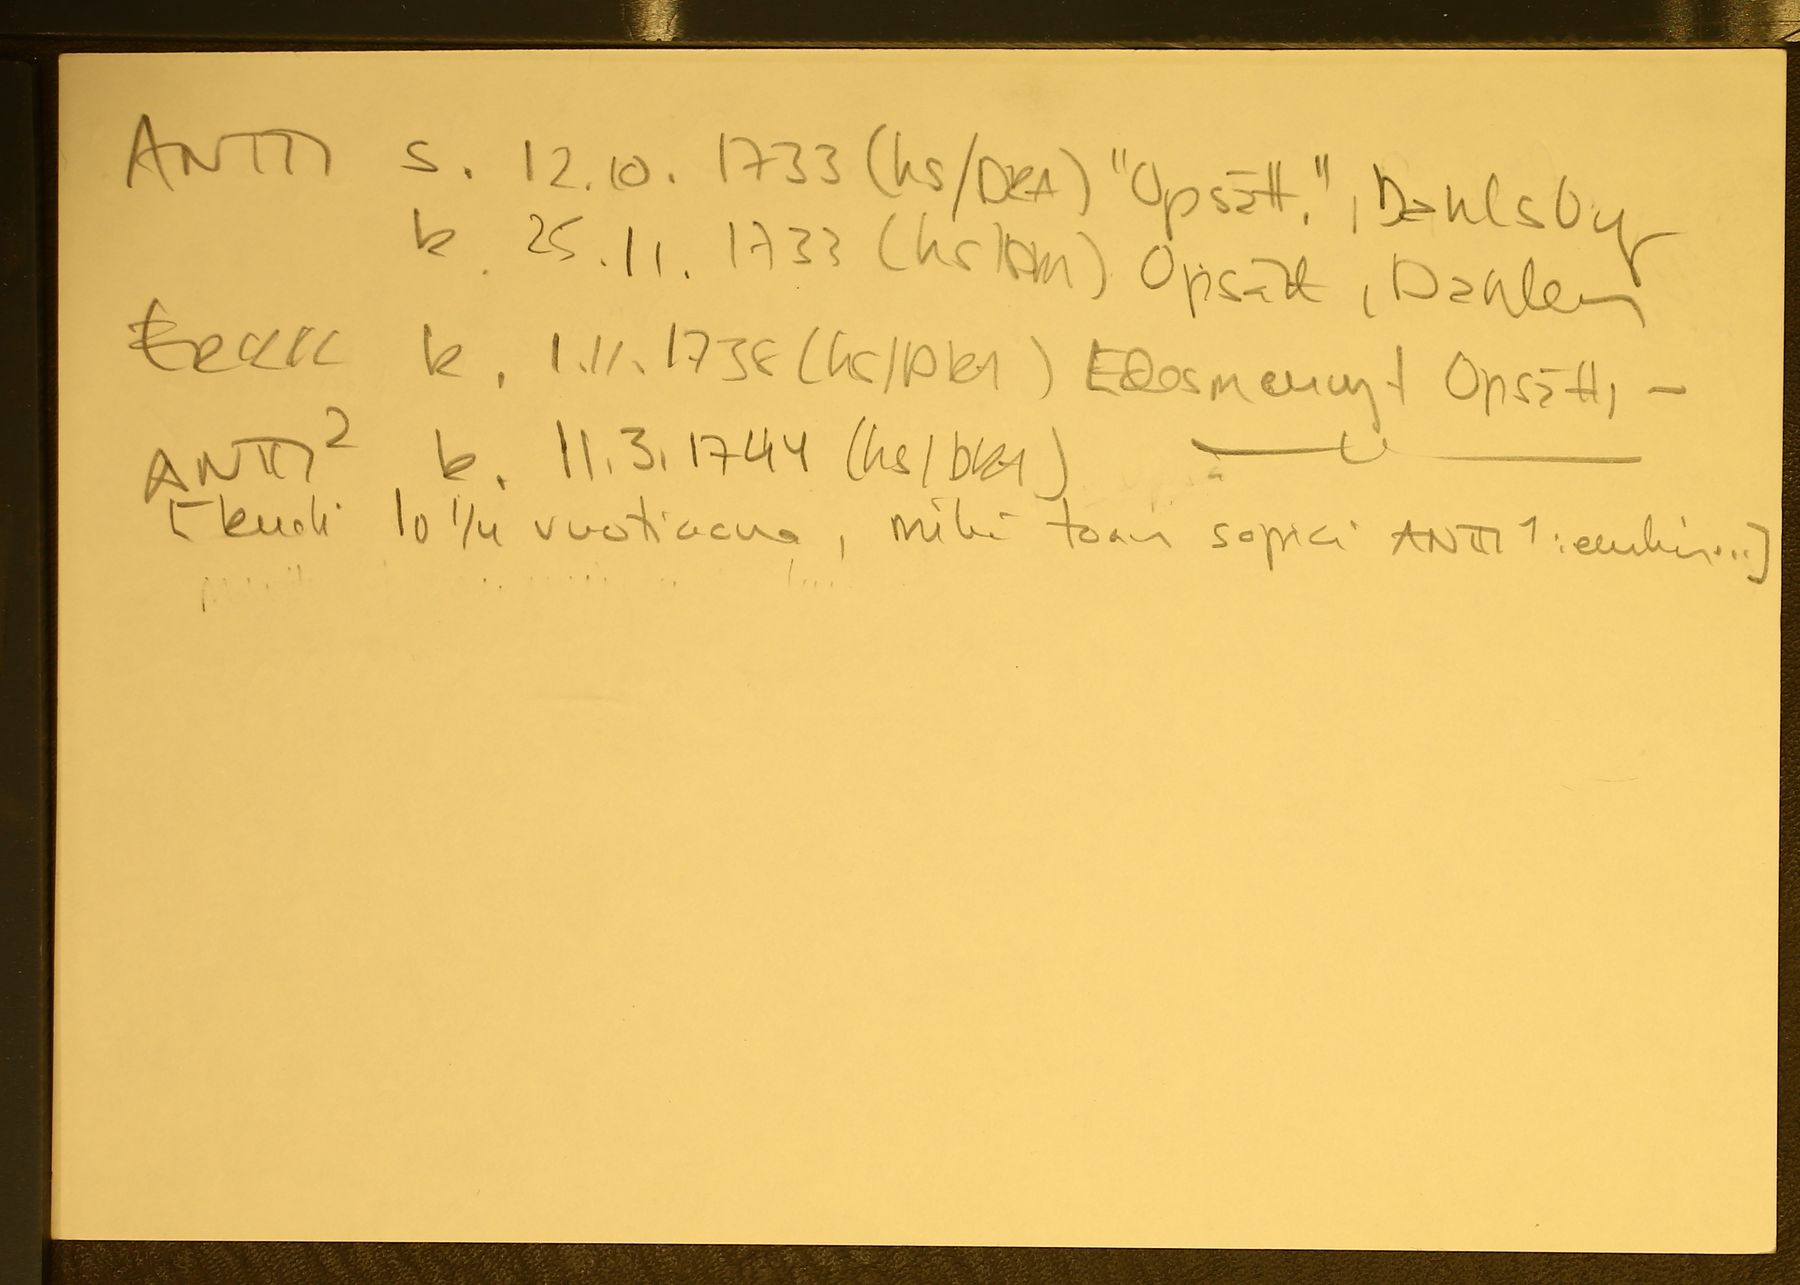 ANTTI s. 12.10. 1733 (hs/DKA) "Opsätt.", Dahlsby
k. 25.11. 1733 (hs/DKA) Opsätt, Dahlen
k. 1.11.1738 (hs/DKA) Opsätt, –
ANTTI² k. 11.3.1744 (hs/DKA) — " —
[kuoli 10 1/4 vuotiaana, mikä sopisi ANTTI 1: